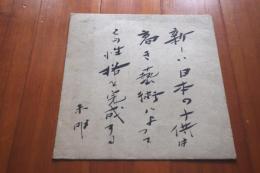 新しい日本の子供は
高き藝術によって
その性格を完成する
未明